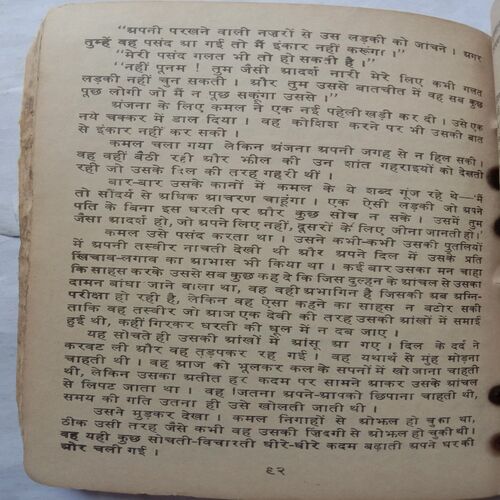 “अपनी परखने वाली नज़रों से उस लड़की को जांचने। अगर
तुम्हें वह पसंद आ गई तो मैं इंकार नहीं करूंगा।”
“मेरी पसंद गलत भी तो हो सकती है।”
“नहीं पूनम ! तुम जैसी आदर्श नारी मेरे लिए कभी गलत
लड़की नहीं चुन सकती। और तुम उससे बातचीत में वह सब कुछ
पूछ लोगी जो मैं न पूछ सकूंगा उससे।”
अंजना के लिए कमल ने एक नई पहेली खड़ी कर दी। उसे एक
नये चक्कर में डाल दिया। वह कोशिश करने पर भी उसकी बात
से इंकार नहीं कर सकी।
कमल चला गया लेकिन अंजना अपनी जगह से न हिल सकी।
वह वहीं बैठी रही और झील की उन शांत गहराइयों को देखती
रही जो उसके दिल की तरह गहरी थीं।
बार-बार उसके कानों में कमल के ये शब्द गूंज रहे थे—‘मैं
तो सौंदर्य से अधिक आचरण चाहूंगा। एक ऐसी लड़की जो अपने
पति के बिना इस धरती पर और कुछ सोच न सके। उसमें तुम
जैसा आदर्श हो, जो अपने लिए नहीं, दूसरों के लिए जीना जानती हो।’
कमल उसे पसंद करता था। उसने कभी-कभी उसकी पुतलियों
में अपनी तस्वीर नाचती देखी थी और अपने दिल में उसके प्रति
खिंचाव-लगाव का आभास भी किया था। कई बार उसका मन चाहा
कि साहस करके उससे सब कुछ कह दे कि जिस दुल्हन के आंचल से उसका
दामन बांधा जाने वाला था, वह वही अभागिन है जिसकी अब अग्नि-
परीक्षा हो रही है, लेकिन वह ऐसा कहने का साहस न बटोर सकी
ताकि वह तस्वीर जो आज एक देवी की तरह उसकी आंखों में समाई
हुई थी, कहीं गिरकर धरती की धूल में न दब जाए।
यह सोचते ही उसकी आंखों में आंसू आ गए। दिल के दर्द ने
करवट ली और वह तड़पकर रह गई। वह यथार्थ से मुंह मोड़ना
चाहती थी। वह आज को भूलकर कल के सपनों में खो जाना चाहती
थी, लेकिन उसका अतीत हर कदम पर सामने आकर उसके आंचल
से लिपट जाता था। वह जितना अपने-आपको छिपाना चाहती थी,
समय की गति उतना ही उसे खोलती जाती थी।
उसने मुड़कर देखा। कमल निगाहों से ओझल हो चुका था,
ठीक उसी तरह जैसे कभी वह उसकी ज़िंदगी से ओझल हो चुकी थी।
वह यही कुछ सोचती-विचारती धीरे-धीरे कदम बढ़ाती अपने घर की
ओर चली गई।
९२